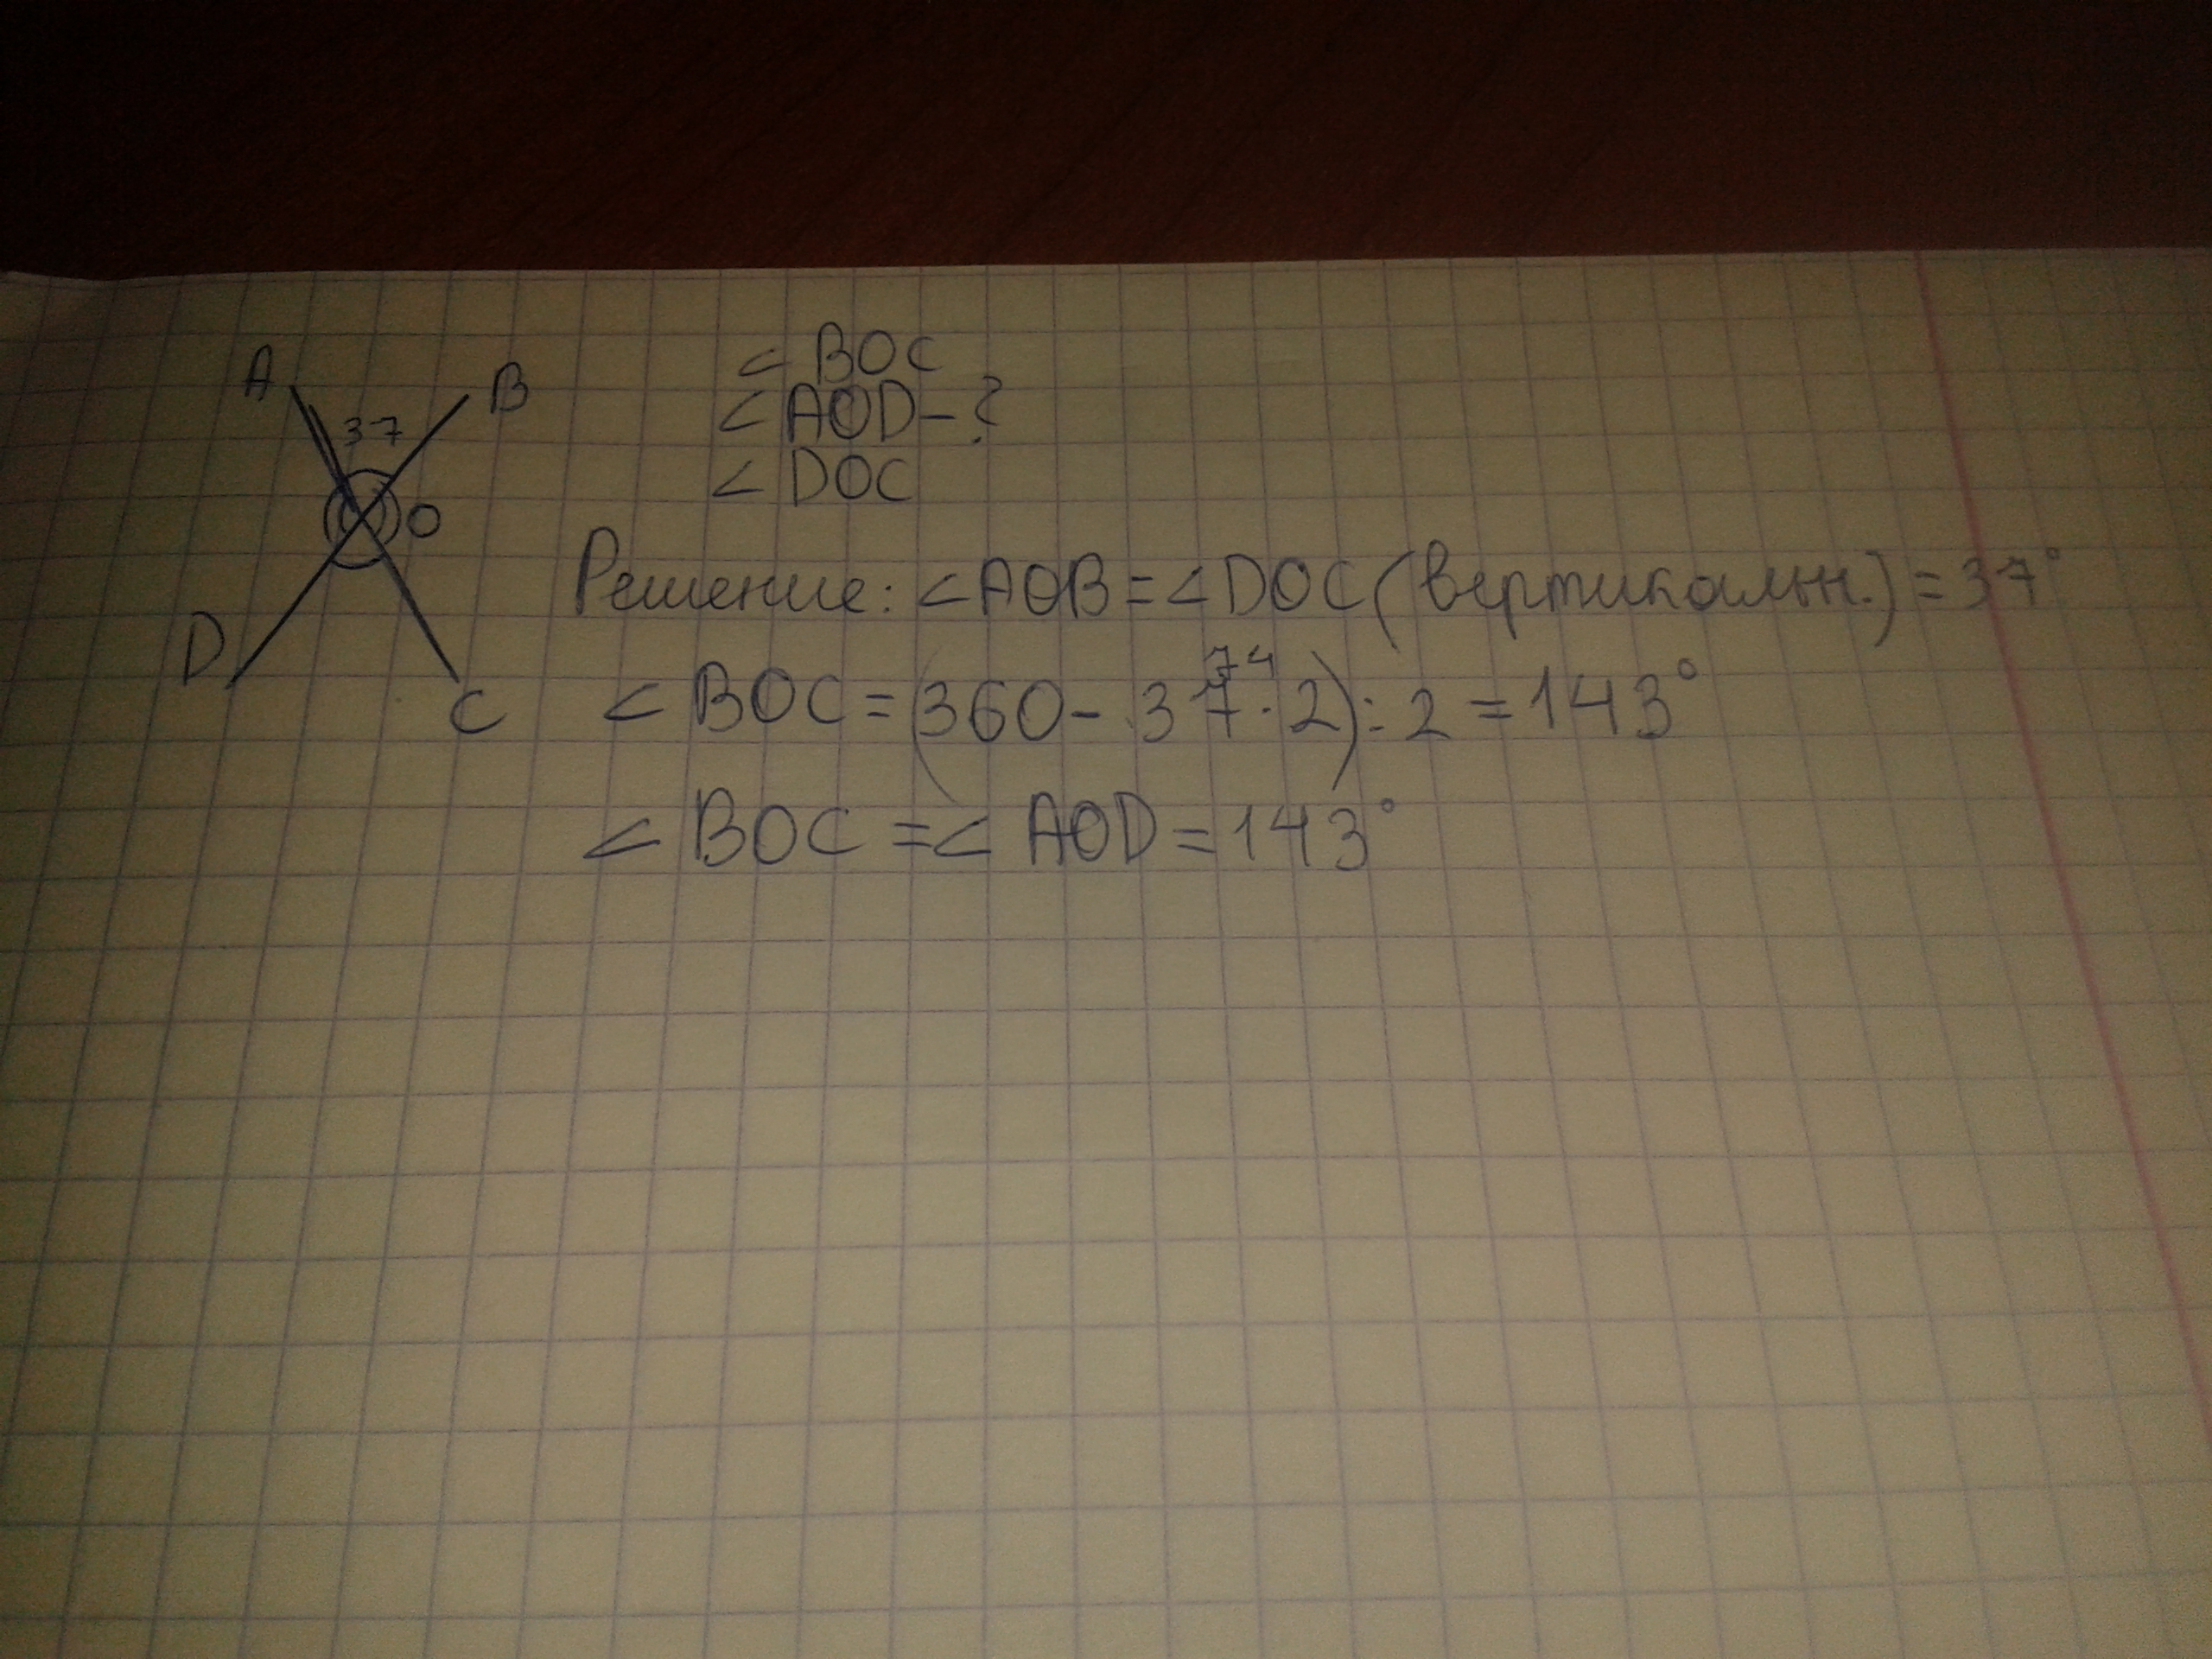 A
B
37
O
D
C
< BOC
< AOD - ?
< DOC
Решение: < AOB = < DOC (вертикальн.) = 37°
74
< BOC = (360 - 37 · 2) : 2 = 143°
< BOC = < AOD = 143°